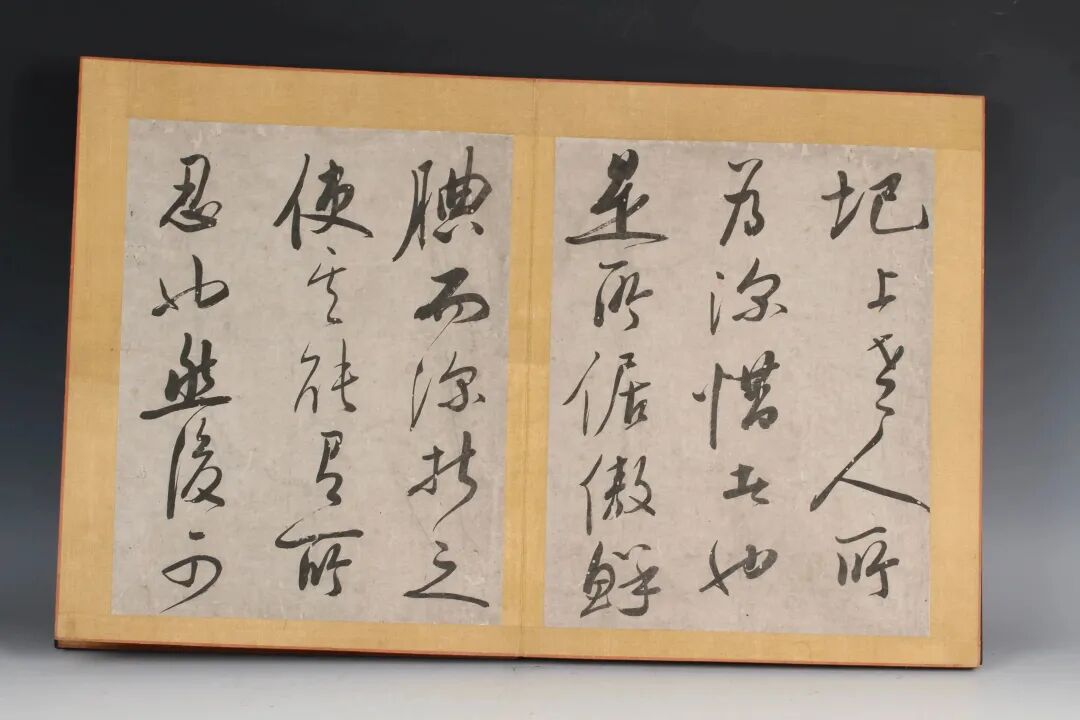 圯上老人所
為深惜者也
是所倨傲鮮
腆而深折之
使其能有所
忍也然後可